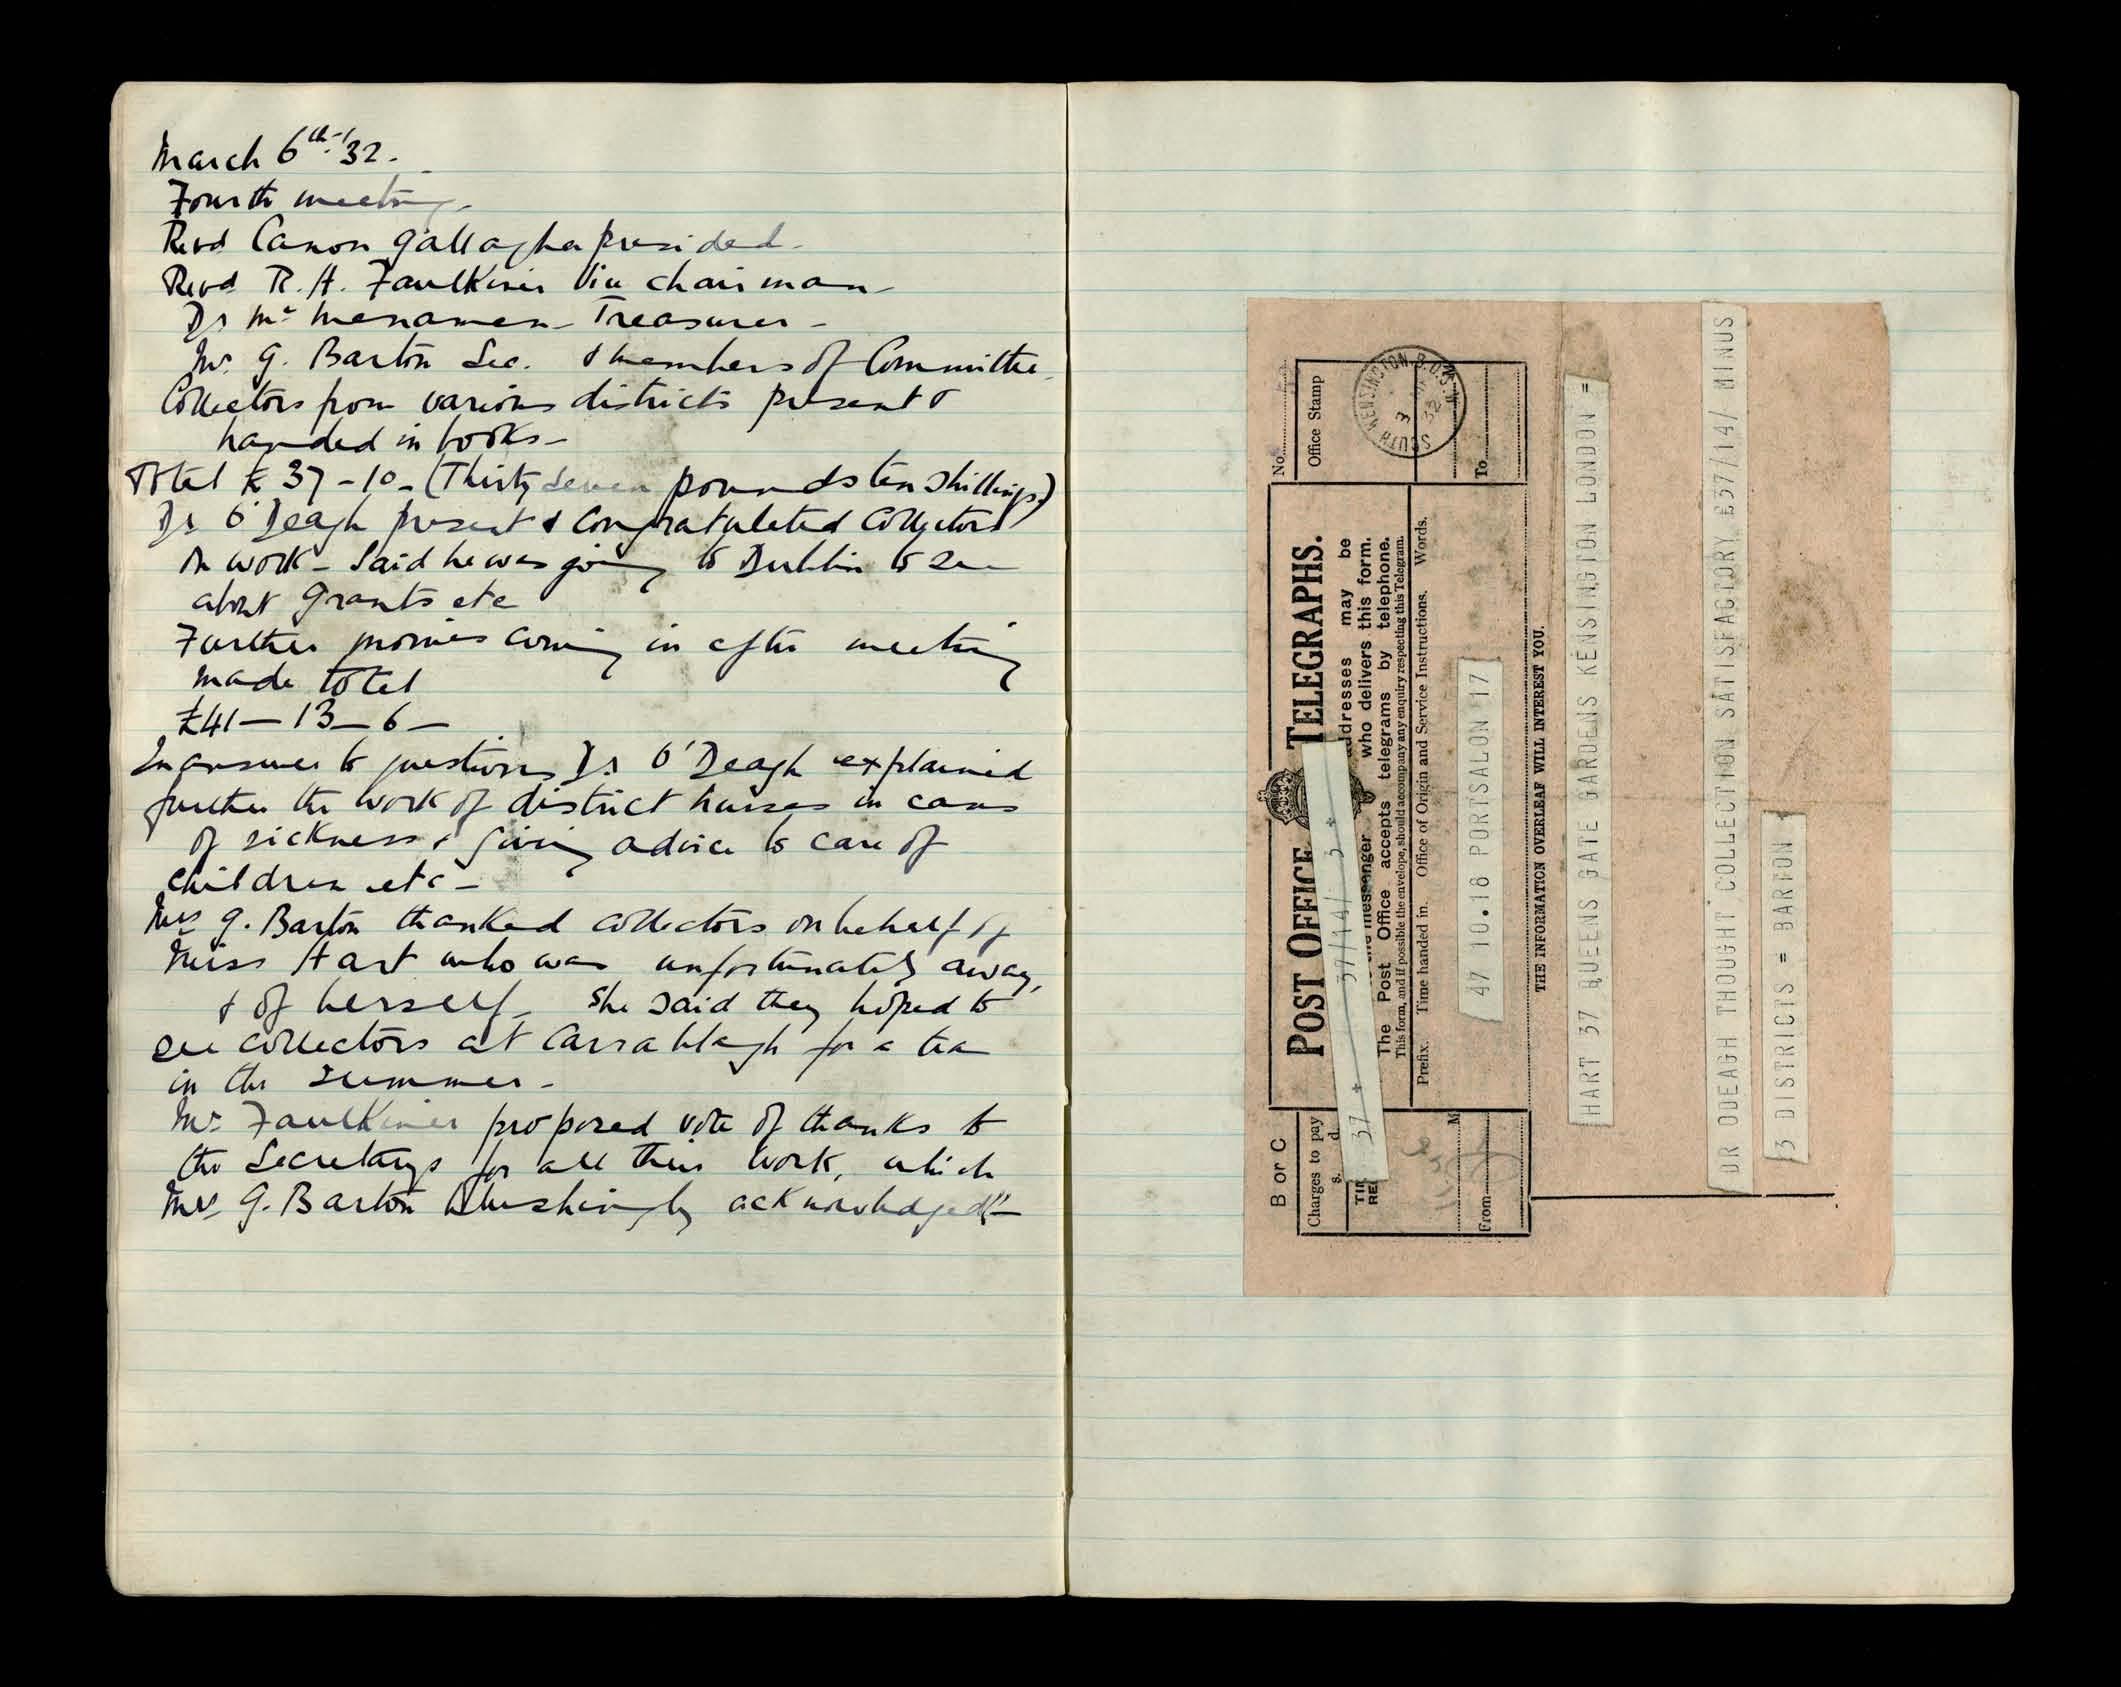 March 6th '32.
Fourth meeting.
Revd Canon Gallagher presided.
Revd R. H. Faulkiner Vice chairman
Dr Mc Menamen - Treasurer -
Mrs G. Barton Sec. & members of Committee.
Collectors from various districts present &
handed in books -
Total £37-10- (Thirty seven pounds ten shillings)
Dr O'Deagh present & congratulated Collectors
on work - Said he was going to Dublin to see
about Grants etc
Further monies coming in after meeting
made total
£41-13-6-
In answer to questions Dr O'Deagh explained
further the work of district nurses in cases
of sickness & giving advice to care of
children etc -
Mrs G. Barton thanked collectors on behalf of
Miss Hart who was unfortunately away,
& of herself - She said they hoped to
see collectors at Carrablagh for a tea
in the summer -
Mr Faulkiner proposed vote of thanks to
the Secretarys for all their work, which
Mrs G. Barton blushingly acknowledged" -
B or C
Charges to pay
s. d.
POST OFFICE TELEGRAPHS.
No.
Office Stamp
SOUTH KENSINGTON B.O. S.W.
3
32
37 + 37/14/ 3 +
addresses may be
messenger who delivers this form.
The Post Office accepts telegrams by telephone.
This form, and if possible the envelope, should accompany any enquiry respecting this Telegram.
Prefix. Time handed in. Office of Origin and Service Instructions. Words.
47 10.18 PORTSALON 17
From
M
To
THE INFORMATION OVERLEAF WILL INTEREST YOU.
HART 37 QUEENS GATE GARDENS KENSINGTON LONDON =
DR ODEAGH THOUGHT COLLECTION SATISFACTORY £37/14/ MINUS
3 DISTRICTS = BARTON